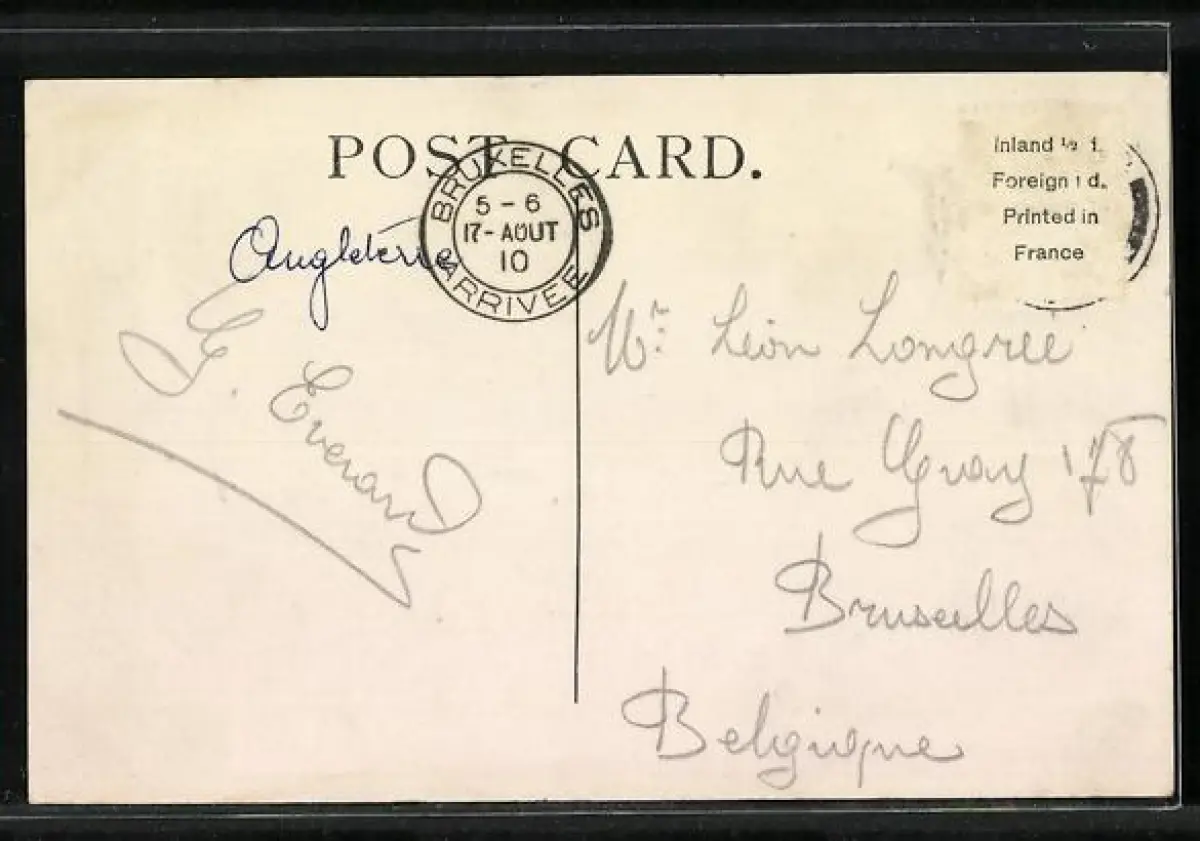 POST CARD.
BRUXELLES
5 - 6
17 - AOUT
10
ARRIVEE
Inland ½ d.
Foreign 1 d.
Printed in
France
Angleterre
G. Everard
Mr. Léon Longrée
Rue Gray 178
Bruxelles
Belgique